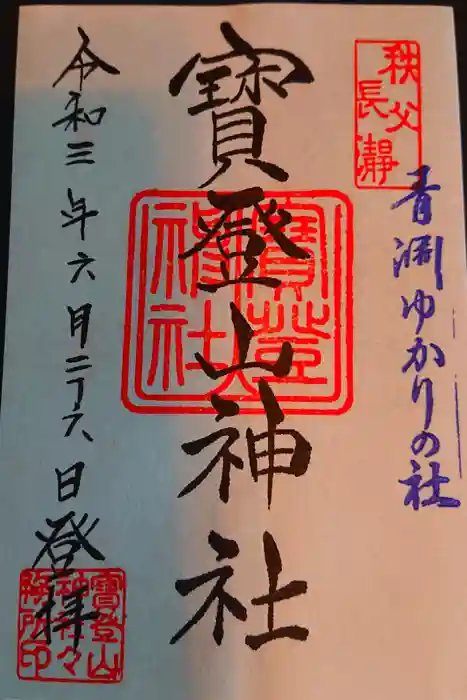 秩父
長瀞
青淵ゆかりの社
寳登山神社
寳登
山神社
令和三年六月二十六日登拝
寳登山
神社々
務所印